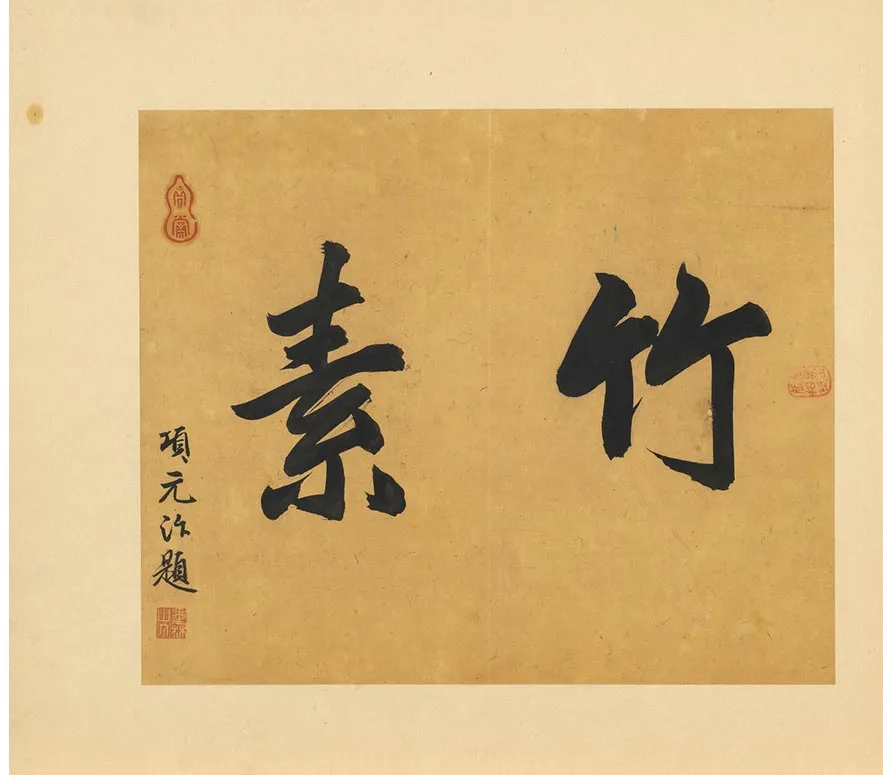 竹素
項元汴題